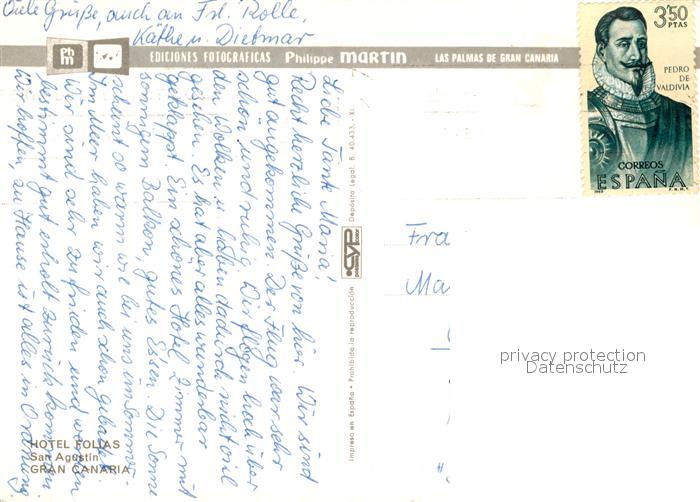 Viele Grüße, auch an Frl. Rolle,
Käthe u. Dietmar
Phm
EDICIONES FOTOGRAFICAS Philippe MARTIN LAS PALMAS DE GRAN CANARIA
3'50
PTAS
PEDRO
DE
VALDIVIA
CORREOS
ESPAÑA
Liebe Tante Maria!
Recht herzliche Grüße von hier. Wir sind
gut angekommen. Der Flug war sehr
schön und ruhig. Wir flogen hoch über
den Wolken u. haben dadurch nicht viel
gesehen. Es hat aber alles wunderbar
geklappt. Ein schönes Hotel Zimmer mit
sonnigem Balkon, gutes Essen. Die Sonne
scheint so warm wie bei uns im Sommer.
Im Meer haben wir auch schon gebadet.
Wir sind sehr zufrieden und werden
bestimmt gut erholt zurück kommen.
Wir hoffen, zu Hause ist alles in Ordnung.
Impreso en España • Prohibida la reproducción
CYP
Depósito Legal. B. 40.433. - XI
Fra
Ma
privacy protection
Datenschutz
HOTEL FOLIAS
San Agustín
GRAN CANARIA